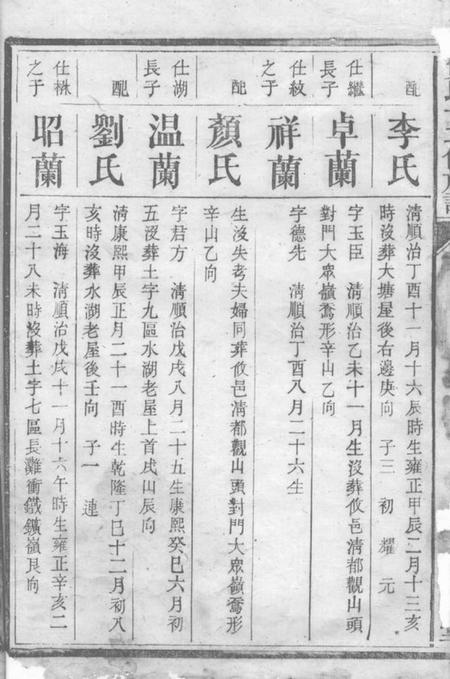 配
李氏
清順治丁酉十一月十六辰時生雍正甲辰二月十三亥
時沒葬大塘屋後右邊庚向 子三 初 耀 元
仕繼
長子
卓蘭
字玉臣 清順治乙未十一月生沒葬攸邑清都觀山頭
對門大眾嶺鶩形辛山乙向
仕紋
之子
祥蘭
字德先 清順治丁酉八月二十六生
配
顏氏
生沒失考夫婦同葬攸邑清都觀山頭對門大眾嶺鶩形
辛山乙向
仕湖
長子
温蘭
字君方 清順治戊戌八月二十五生康熙癸巳六月初
五沒葬土字九區水湖老屋上首戌山辰向
配
劉氏
清康熙甲辰正月二十一酉時生乾隆丁巳十二月初八
亥時沒葬水湖老屋後壬向 子一 連
仕㭲
之子
昭蘭
字玉海 清順治戊戌十一月十六午時生雍正辛亥二
月二十八未時沒葬土字七區長灘衝鐵鑛嶺艮向